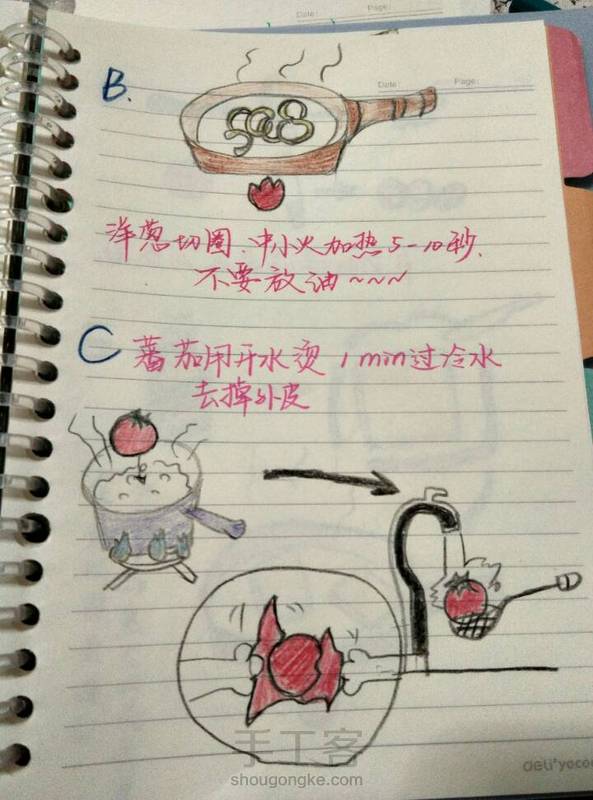 Date: Page:
B.
Date: Page:
洋葱切圈、中小火加热5-10秒、
不要放油~~~
C 蕃茄用开水烫1min过冷水
去掉外皮
手工客
shougongke.com
deli'yocoo